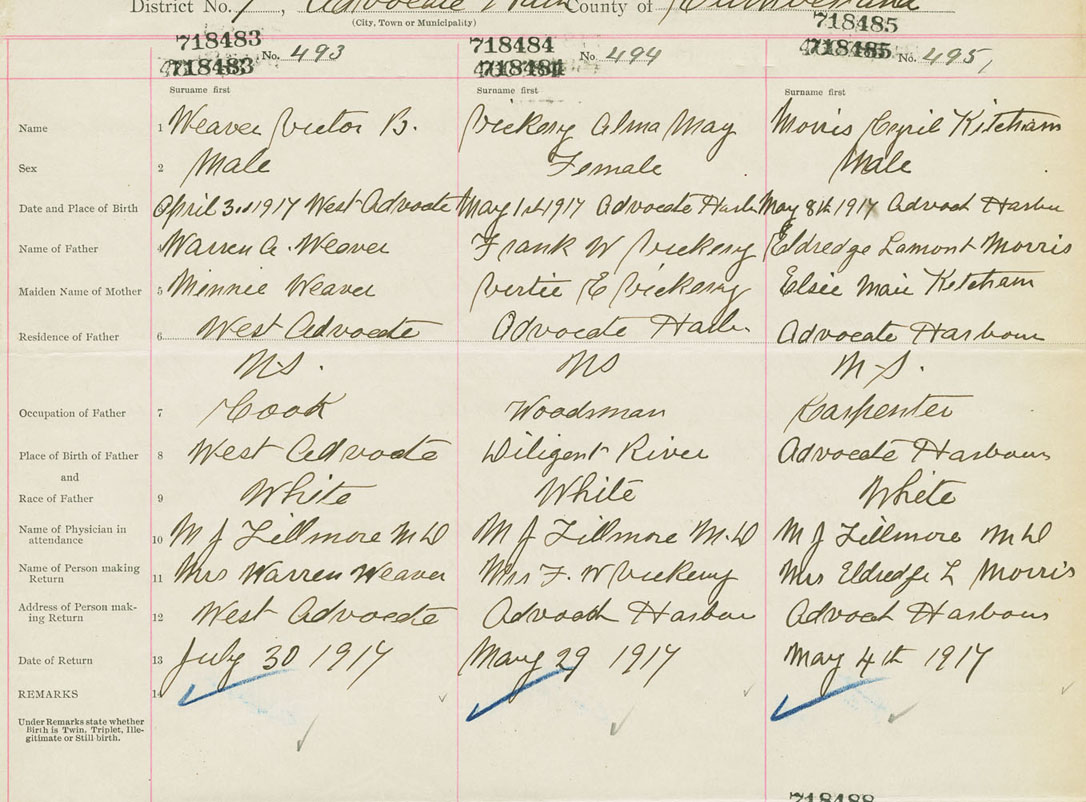 District No. 7, Advocate County of Cumberland
(City, Town or Municipality)
718483 718484 718485
No. 493 No 494 No. 495,
718483 718484 718485
Surname first Surname first Surname first
Name 1 Weaver Victor B. Vickery Alma May Morris Cyril Kitcham
Sex 2 Male Female Male
Date and Place of Birth April 3rd 1917 West Advocate May 1st 1917 Advocate Harbr May 8th 1917 Advocat Harbur
Name of Father 4 Warren A. Weaver Frank W Vickery Eldredge Lamont Morris
Maiden Name of Mother 5 Minnie Weaver Virtie E Vickery Elsie Marie Ketcham
Residence of Father 6 West Advocate Advocate Harbr Advocate Harbour
NS. NS N.S.
Occupation of Father 7 Cook Woodsman Carpenter
Place of Birth of Father 8 West Advocate Diligent River Advocate Harbour
and
Race of Father 9 White White White
Name of Physician in
attendance 10 M J Fillmore M D M J Fillmore M.D M J Fillmore M D
Name of Person making
Return 11 Mrs Warren Weaver Mrs F. W Vickery Mrs Eldredge L Morris
Address of Person mak-
ing Return 12 West Advocate Advocate Harbour Advocat Harbour
Date of Return 13 July 30 1917 May 29 1917 May 4th 1917
REMARKS 14
Under Remarks state whether
Birth is Twin, Triplet, Ille-
gitimate or Still-birth.
718488